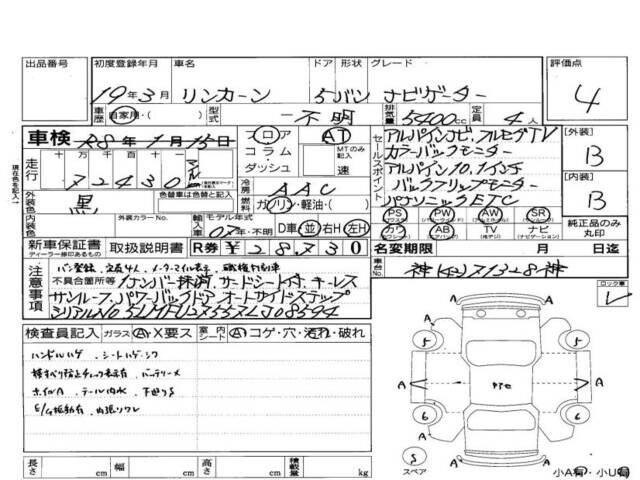 出品番号 初度登録年月 車名 ドア 形状 グレード 評価点
19年3月 リンカーン 5 バン ナビゲーター 4
車歴 自家用・( ) 型式 不明 排気量 5400cc 定員 4人
車検 R8年1月15日 フロア AT セールスポイント アルパインナビ.フルセグTV 【外装】
コラム MTのみ記入 カラーバックモニター B
走行 十万 万 千 百 十 一 ダッシュ 速 アルパイン10.1インチ
72430 マイル 冷房 AAC バックフリップモニター 【内装】
外装色 黒 色替車は色替と記入 燃料 ガソリン・軽油・( ) パナソニックETC B
内装色 外装カラーNo. 輸入車 モデル年式 07年・不明 D車 並 右H 左H PS PW AW SR
カワ AB TV ナビ 純正品のみ丸印
新車保証書 ディーラー捺印あるもの 取扱説明書 R券 ¥28,730 名変期限 月 日迄
注意事項 バン登録.定員4人.メーターマイル表示
不具合箇所等 サードシート付.キーレス 車台No.
サンルーフ.パワーバックドア オートサイドステップ ロック車
シリアルNo 5LMFU28557LJ08594
検査員記入 ガラス A X要ス 室内 シート A コゲ・穴・汚れ・破れ
ハンドルハゲ.シートハゲ.シワ
横すべり防止チェック表示有.バッテリーメ
ホイルA.テール内水.下廻りS
E/G振動有
A A A A A A
5 5 6 6
S スペア
長さ cm 幅 cm 高さ cm 積載量 kg 小A有・小U有